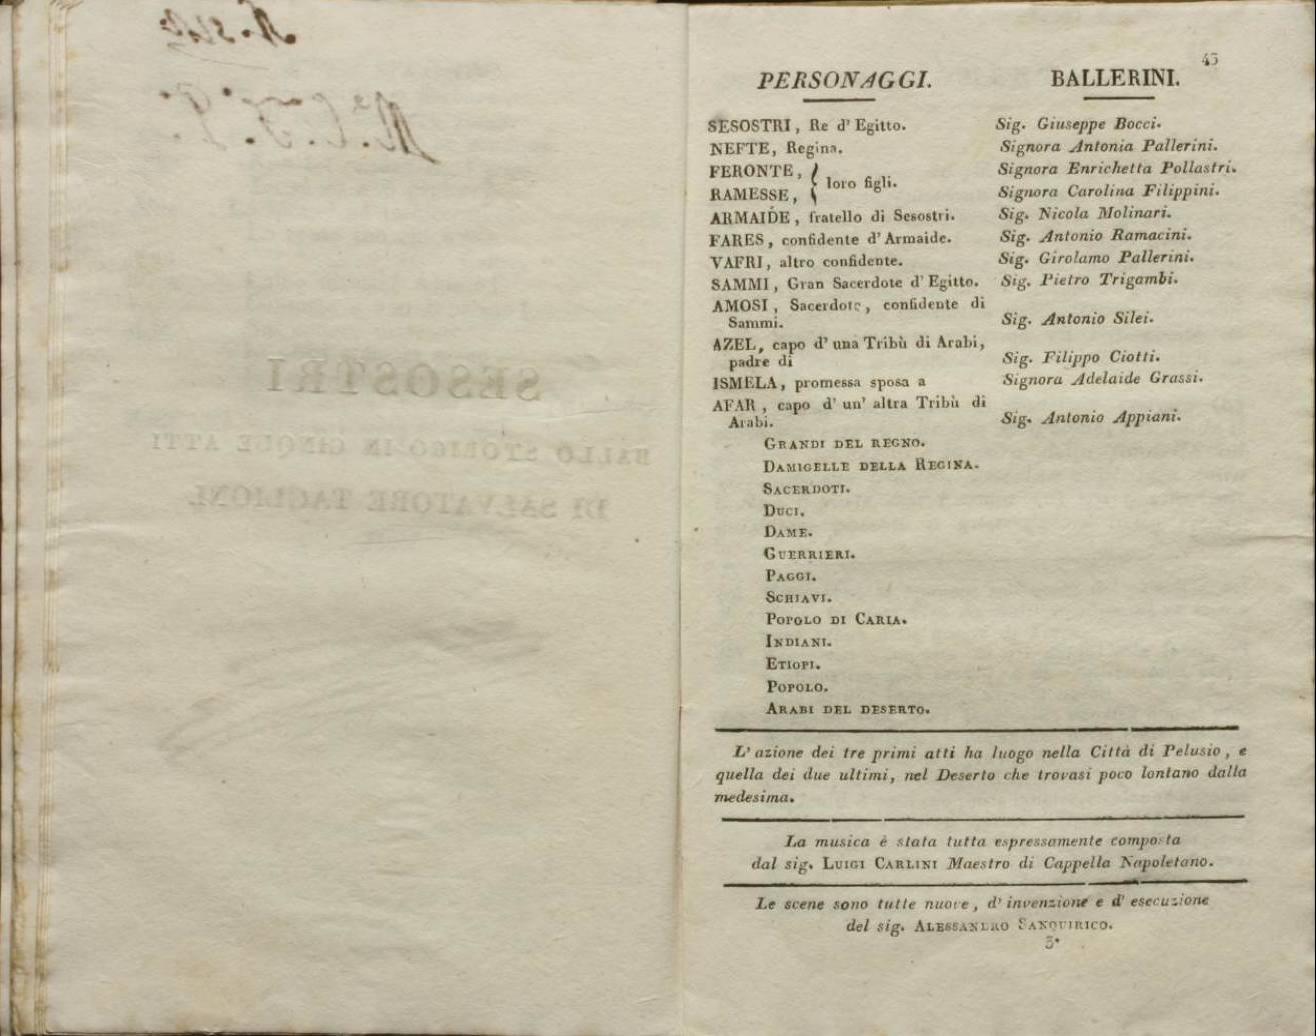 SESOSTRI
BALLO STORICO IN CINQUE ATTI
DI SALVATORE TAGLIONI.
45
PERSONAGGI. BALLERINI.
SESOSTRI, Re d' Egitto. Sig. Giuseppe Bocci.
NEFTE, Regina. Signora Antonia Pallerini.
FERONTE, Signora Enrichetta Pollastri.
loro figli.
RAMESSE, Signora Carolina Filippini.
ARMAIDE, fratello di Sesostri. Sig. Nicola Molinari.
FARES, confidente d' Armaide. Sig. Antonio Ramacini.
VAFRI, altro confidente. Sig. Girolamo Pallerini.
SAMMI, Gran Sacerdote d' Egitto. Sig. Pietro Trigambi.
AMOSI, Sacerdote, confidente di
Sammi. Sig. Antonio Silei.
AZEL, capo d' una Tribù di Arabi,
padre di Sig. Filippo Ciotti.
ISMELA, promessa sposa a Signora Adelaide Grassi.
AFAR, capo d' un' altra Tribù di
Arabi. Sig. Antonio Appiani.
GRANDI DEL REGNO.
DAMIGELLE DELLA REGINA.
SACERDOTI.
DUCI.
DAME.
GUERRIERI.
PAGGI.
SCHIAVI.
POPOLO DI CARIA.
INDIANI.
ETIOPI.
POPOLO.
ARABI DEL DESERTO.
L' azione dei tre primi atti ha luogo nella Città di Pelusio, e
quella dei due ultimi, nel Deserto che trovasi poco lontano dalla
medesima.
La musica è stata tutta espressamente composta
dal sig. LUIGI CARLINI Maestro di Cappella Napoletano.
Le scene sono tutte nuove, d' invenzione e d' esecuzione
del sig. ALESSANDRO SANQUIRICO.
3*